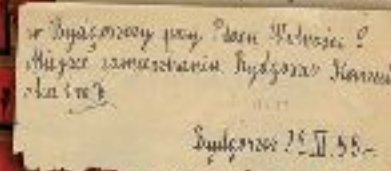 w Bydgoszczy przy Placu Wolności 9
Miejsce zamieszkania Bydgoszcz
ska
Bydgoszcz XI.55.-